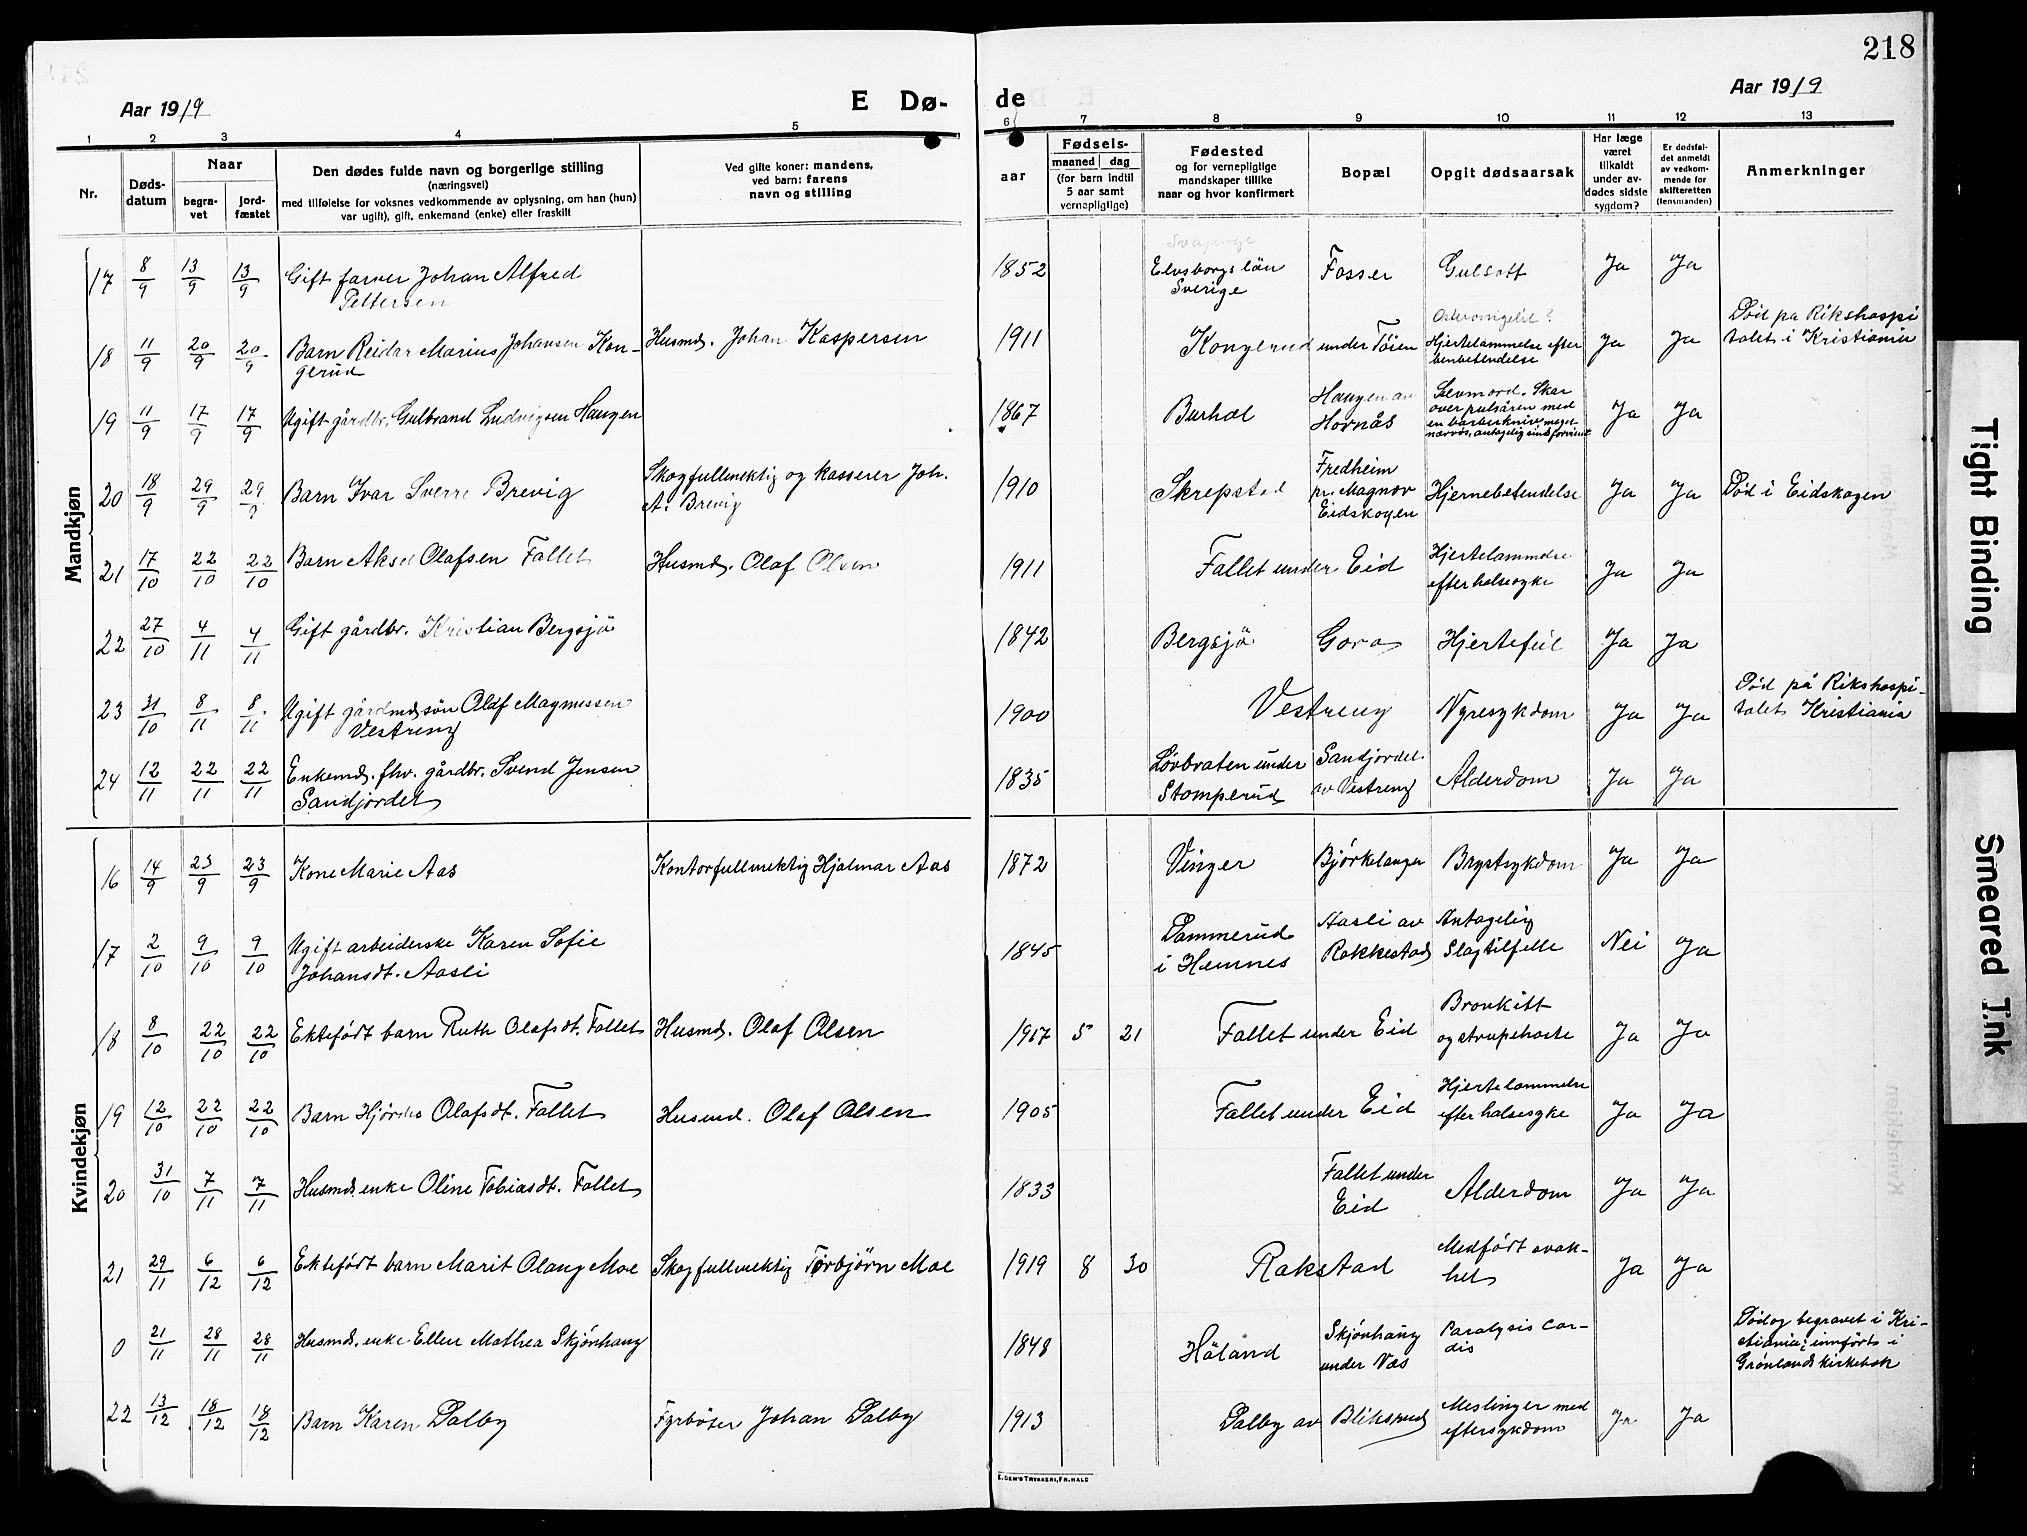 218
Aar 1919
E Dø-
de
Aar 1919
1 2 3 4 5 6 7 8 9 10 11 12 13
Nr.
Døds-
datum
Naar
begra-
vet
jord-
fæstet
Den dødes fulde navn og borgerlige stilling
(næringsvei)
med tilføielse for voksnes vedkommende av oplysning, om han (hun)
var ugift), gift, enkemand (enke) eller fraskilt
Ved gifte koner: mandens,
ved barn: farens
navn og stilling
aar
Fødsels-
maaned dag
(for barn indtil
5 aar samt
vernepligtige)
Fødested
og for vernepligtige
mandskaper tillike
naar og hvor konfirmert
Bopæl
Opgit dødsaarsak
Har læge
været
tilkaldt
under av-
dødes sidste
sygdom?
Er dødsfal-
det anmeldt
av vedkom-
mende for
skifteretten
(lensmanden)
Anmerkninger
Mandkjøn
17 8/9 13/9 13/9 Gift farver Johan Alfred
Pettersen
1852 Elvsborgs län
Sverige
Fosser Gulsott Ja Ja
18 11/9 20/9 20/9 Barn Reidar Marius Johansen Kon-
gerud
Husmd. Johan Kaspersen
1911 Kongerud under Töien
Hjertelammelse efter
benbetendelse
Ja Ja
Död pa Rikshospi
talet i Kristiania
19 11/9 17/9 17/9 Ugift gårdbr. Gulbrand Ludvigsen Haugen
1867 Burhol
Haugen av
Hornås
Selvmord. Skar
over pulsåren med
en barberkniv, meget
nærvøs, antagelig sindsforvirret
Ja Ja
20 18/9 29/9 29/9 Barn Ivar Sverre Brevig
Skogfullmektig og kasserer Joh.
A. Brevig
1910 Skrepstad
Fredheim
pr. Magnor
Eidskogen
Hjernebetendelse Ja Ja Död i Eidskogen
21 17/10 22/10 22/10 Barn Aksel Olafsen Fallet
Husmd. Olaf Olsen
1911 Fallet under Eid
Hjertelammelse
efter halssyke
Ja Ja
22 27/10 4/11 4/11 Gift gårdbr. Kristian Bergsjö
1842 Bergsjö Hjertefeil Ja Ja
23 31/10 8/11 8/11 Ugift gårdmdssön Olaf Magnussen
Vestreng
1900 Vestreng Nyresykdom Ja Ja
Död på Rikshospi-
talet Kristiania
24 12/11 22/11 22/11 Enkemd. fhv. gårdbr. Svend Jensen
Sandjordet
1835 Lövbraten under
Stomperud
Sandjordet
av Vestreng
Alderdom Ja Ja
Kvindekjøn
16 14/9 23/9 23/9 Kone Marie Aas
Kontorfullmektig Hjalmar Aas
1872 Vinger Björkelangen Brystsykdom Ja Ja
17 2/10 9/10 9/10 Ugift arbeiderske Karen Sofie
Johansdt. Aasli
1845 Dammerud
i Hemnes
Aasli av
Rakkestad
Antagelig
Slagtilfelle
Nei Ja
18 8/10 22/10 22/10 Ektefödt barn Ruth Olafsdt. Fallet
Husmd. Olaf Olsen
1917 5 21 Fallet under Eid
Bronkitt
og strupehoste
Ja Ja
19 12/10 22/10 22/10 Barn Hjördis Olafsdt. Fallet
Husmd. Olaf Olsen
1905 Fallet under Eid
Hjertelammelse
efter halssyke
Ja Ja
20 31/10 7/11 7/11 Husmds. enke Oline Tobiasdt. Fallet
1833 Fallet under
Eid
Alderdom Ja Ja
21 29/11 6/12 6/12 Ektefödt barn Marit Olaug Moe
Skogfullmektig Torbjörn Moe
1919 8 30 Rakstad
Medfödt svak-
het
Ja Ja
0 21/11 28/11 28/11 Husmds. enke Ellen Mathea Skjönhaug
1848 Höland
Skjönhaug
under Næs
Paralysis cor-
dis
Död og begravet i Kri-
stiania; innfört i
Grönlands kirkebok
22 13/12 18/12 18/12 Barn Karen Dalby
Fyrböter Johan Dalby
1913 Dalby av Bliksrud
Meslinger med
eftersykdom
Ja Ja
E. SEM'S TRYKKERI, FR.HALD
Tight Binding
Smeared Ink